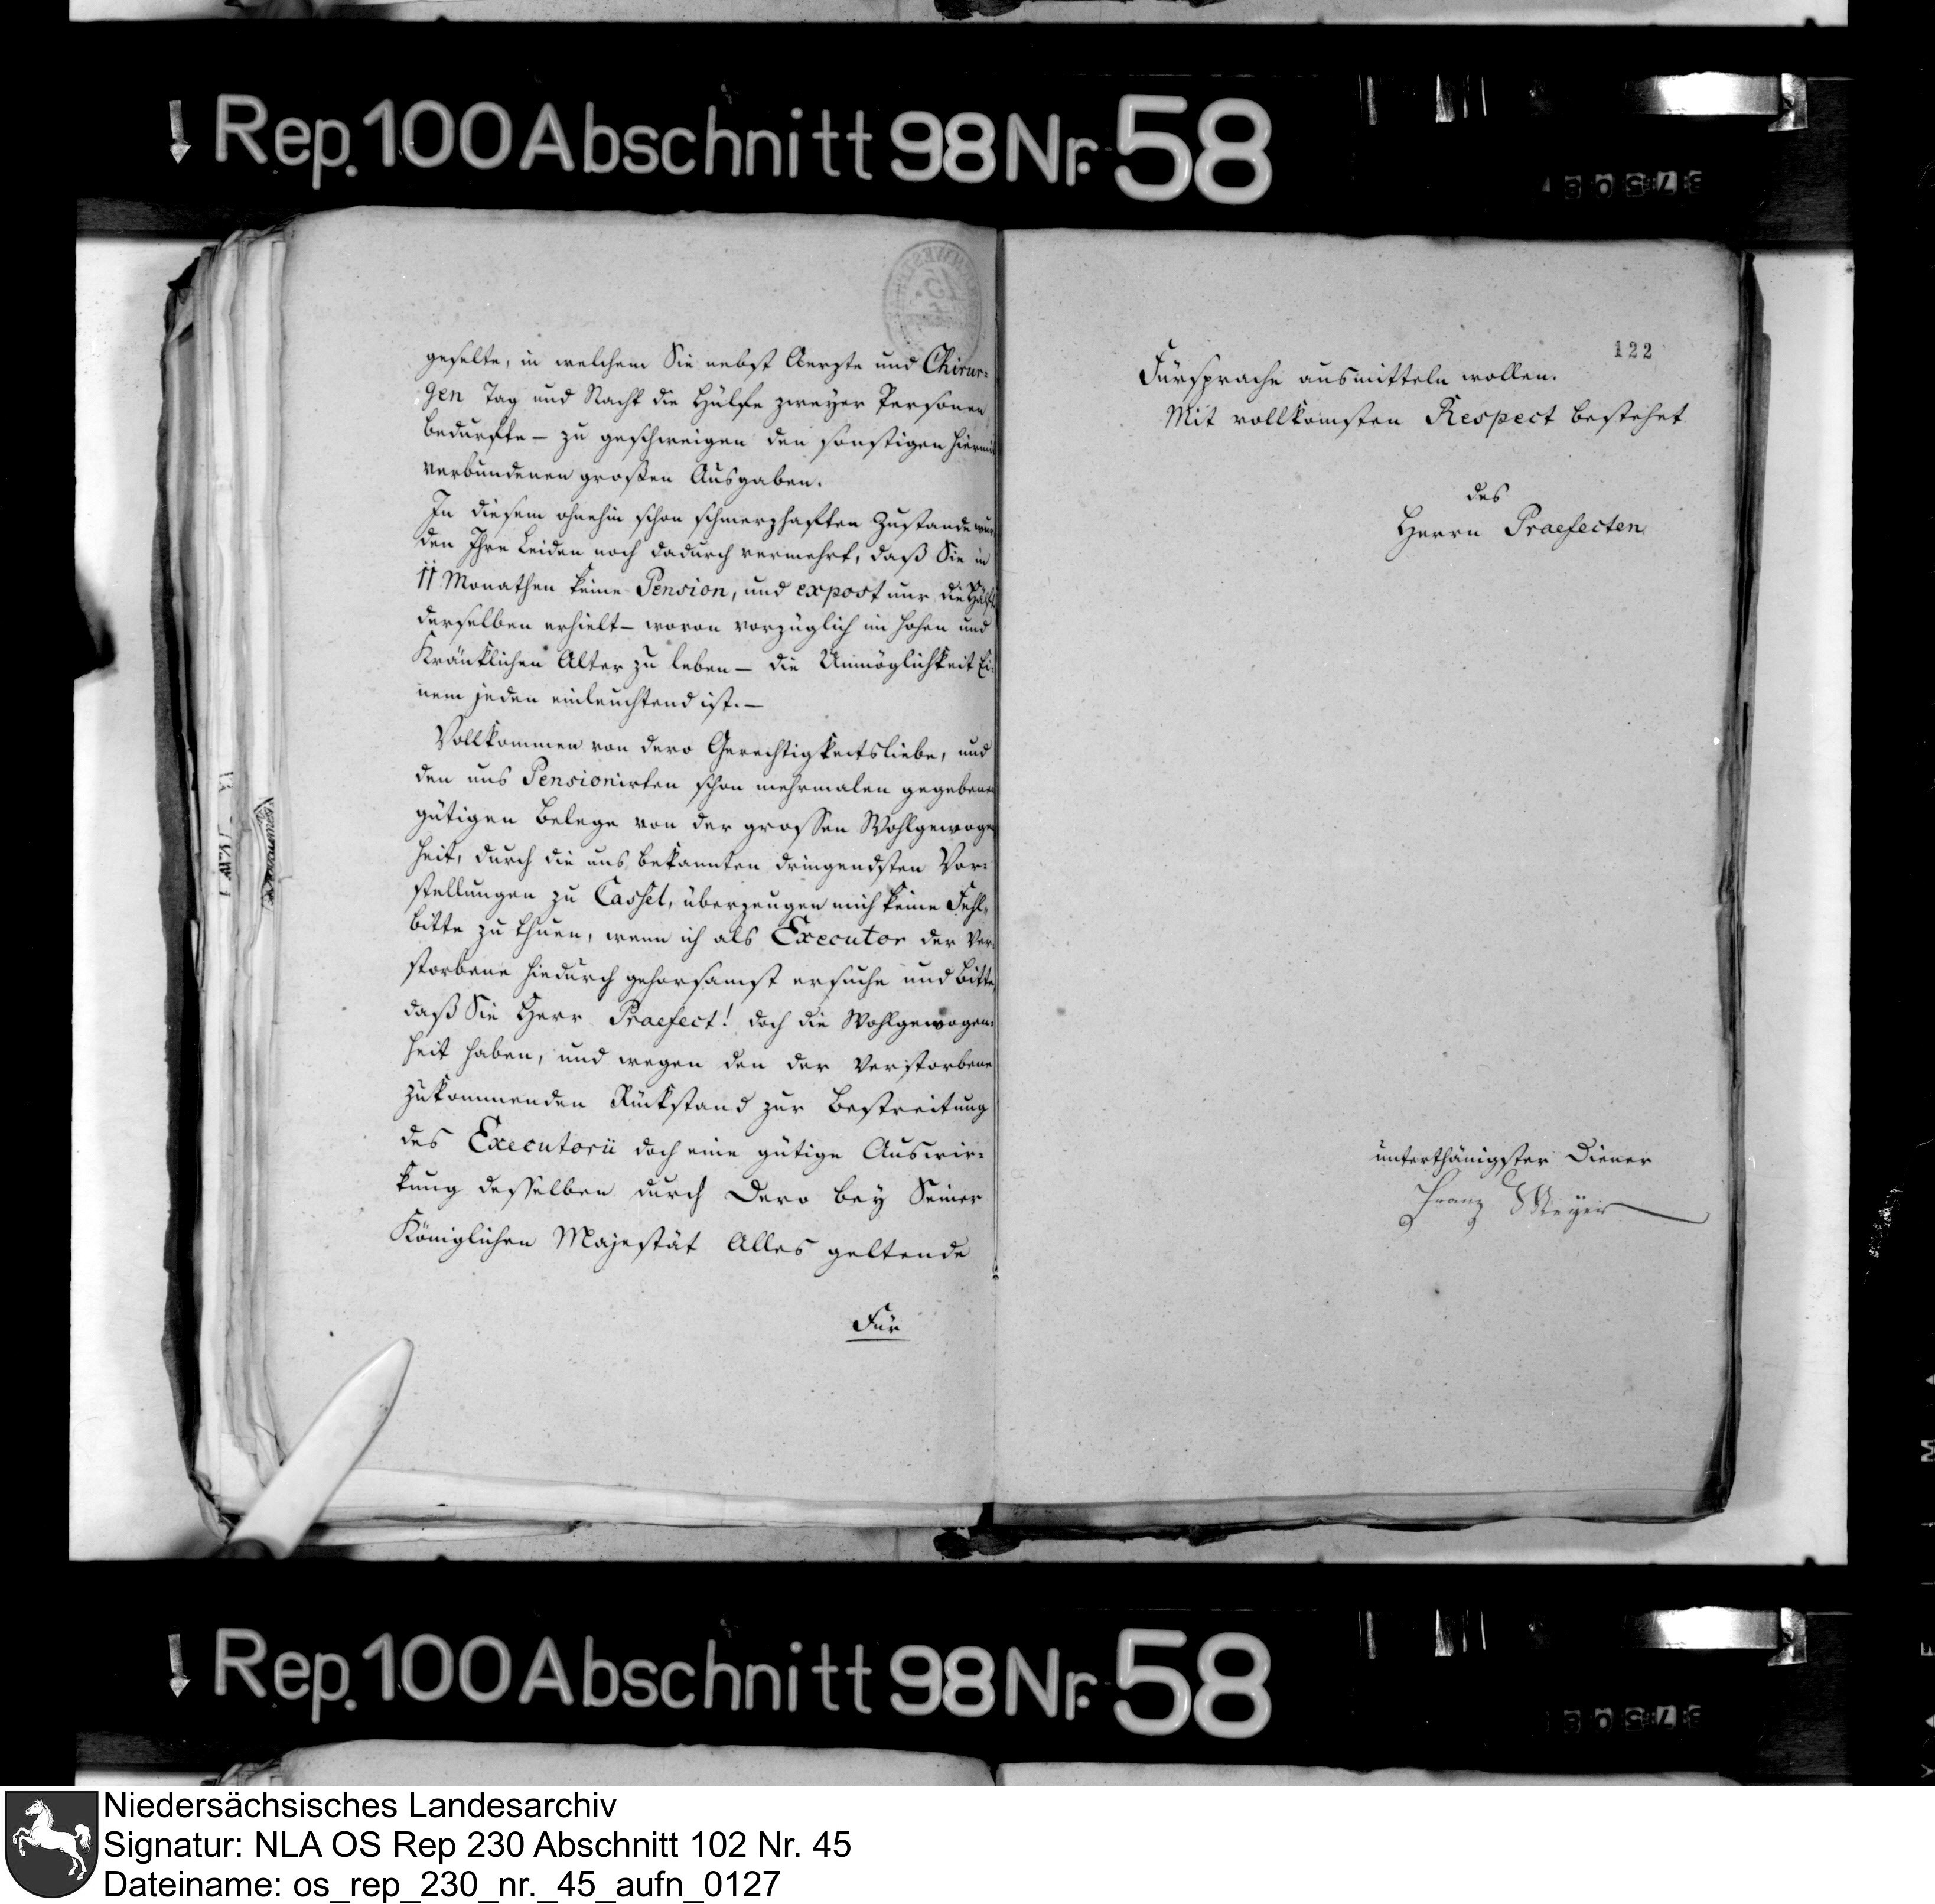 Rep. 100 Abschnitt 98 Nr. 58
geselte, in welchem Sie nebst Aerzte und Chirur-
gen Tag und Nacht die Hülfe zweyer Personen
bedurfte – zu geschweigen den sonstigen hiermit
verbundenen großen Ausgaben.
In diesem ohnehin schon schmerzhaften Zustande wur-
den Ihre Leiden noch dadurch vermehrt, daß Sie in
11 Monathen keine Pension, und expost nur die Hälfte
derselben erhielt – wovon vorzüglich im hohen und
Kränklichen Alter zu leben – die Unmöglichkeit Ei-
nem jeden einleuchtend ist. –
Vollkommen von dero Gerechtigkeitsliebe, und
den uns Pensionirten schon mehrmalen gegebenen
gütigen Belege von der grossen Wohlgewogen
heit, durch die uns bekannten dringendsten Vor-
stellungen zu Cassel, überzeugen mich keine Fehl-
bitte zu thuen, wenn ich als Executor der Ver-
storbene hiedurch gehorsamst ersuche und bitte,
daß Sie Herr Praefect! doch die Wohlgewogen-
heit haben, und wegen den der Verstorbene
zukommenden Rückstand zur Bestreitung
des Executorii doch eine gütige Auswir-
kung desselben durch Dero bey Seiner
Königlichen Majestät Alles geltende
Für
122
Fürsprache ausmitteln wollen.
Mit vollkomsten Respect bestehet
des
Herrn Praefecten
unterthänigster Diener
Franz Meyer
Rep. 100 Abschnitt 98 Nr. 58
Niedersächsisches Landesarchiv
Signatur: NLA OS Rep 230 Abschnitt 102 Nr. 45
Dateiname: os_rep_230_nr._45_aufn_0127